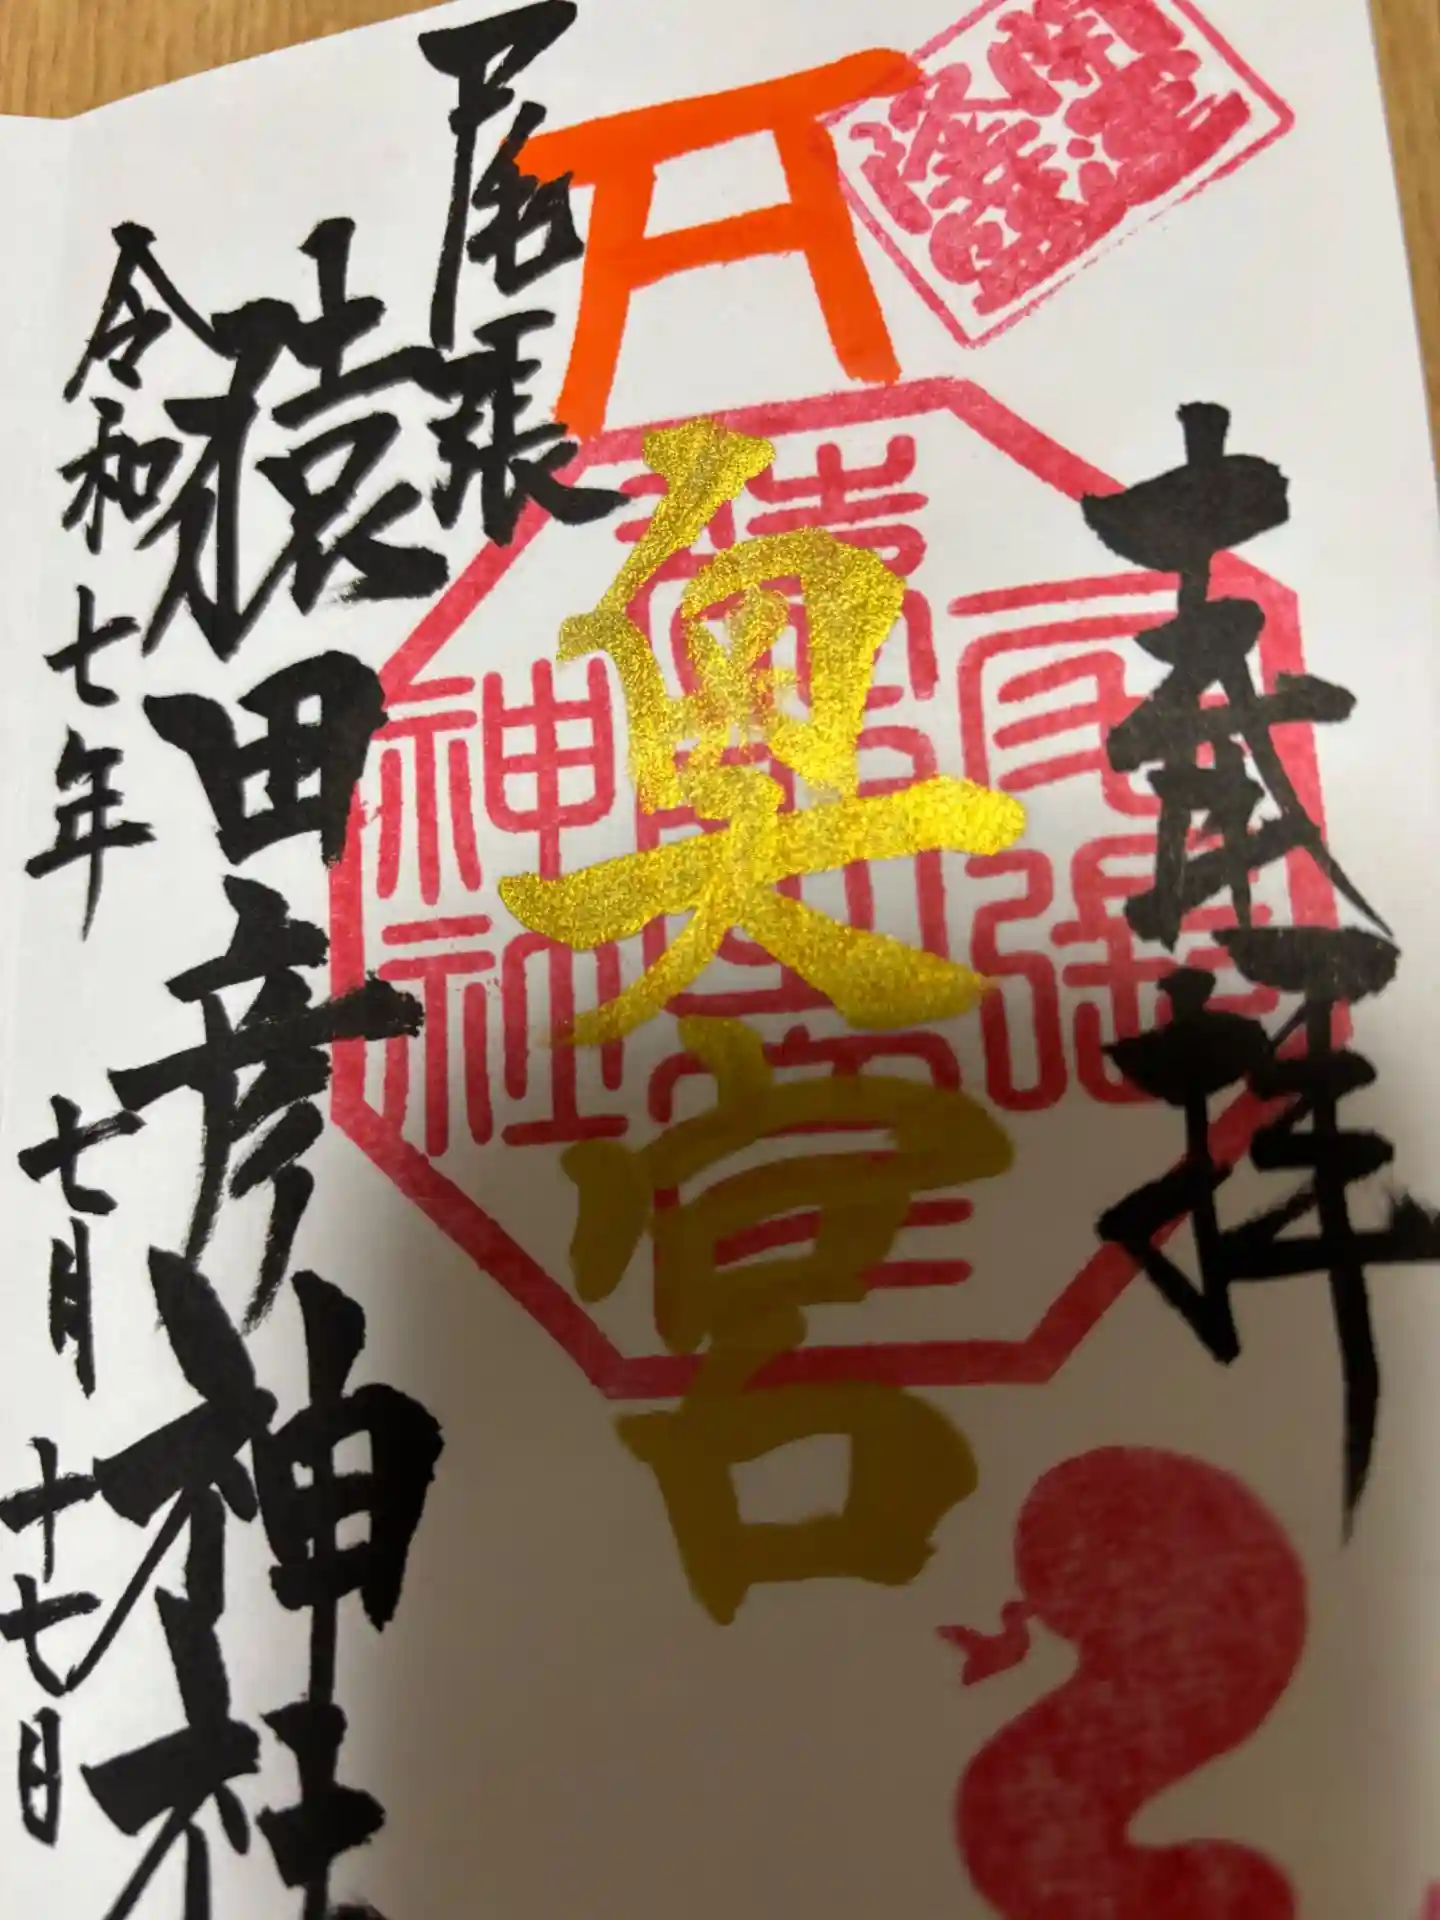 奉拝
奥宮
尾張
猿田彦神社
令和七年七月十七日
尾張
猿田彦
神社